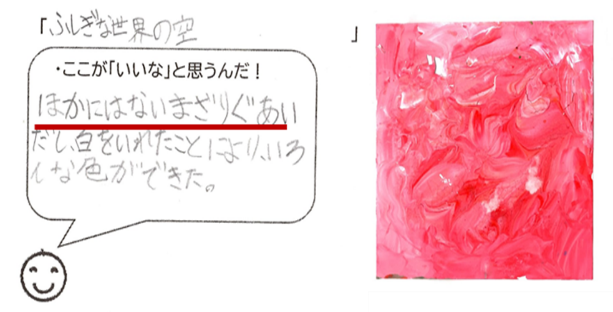 「ふしぎな世界の空」
・ここが「いいな」と思うんだ！
ほかにはないまざりぐあい
だし、白をいれたことにより、いろ
んな色ができた。